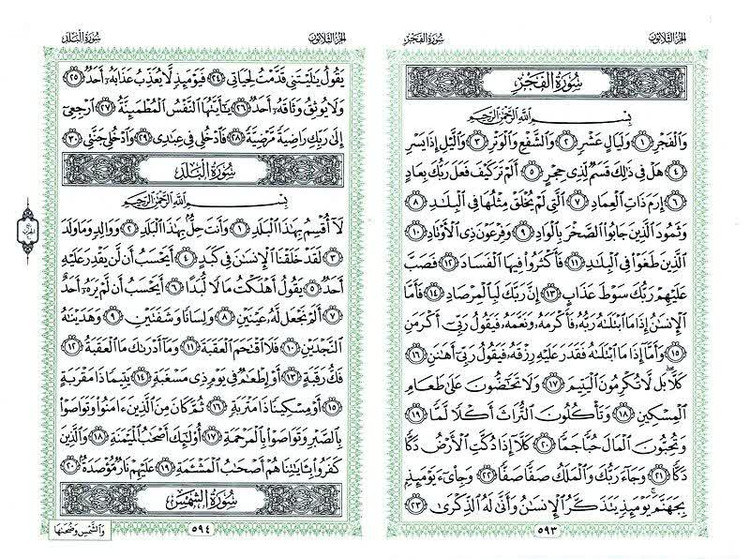 الجزء الثلاثون
سورة الفجر
سُورَةُ الفَجْرِ
بِسْمِ اللَّهِ الرَّحْمَٰنِ الرَّحِيمِ
وَالْفَجْرِ ١ وَلَيَالٍ عَشْرٍ ٢ وَالشَّفْعِ وَالْوَتْرِ ٣ وَاللَّيْلِ إِذَا يَسْرِ
٤ هَلْ فِي ذَٰلِكَ قَسَمٌ لِّذِي حِجْرٍ ٥ أَلَمْ تَرَ كَيْفَ فَعَلَ رَبُّكَ بِعَادٍ
٦ إِرَمَ ذَاتِ الْعِمَادِ ٧ الَّتِي لَمْ يُخْلَقْ مِثْلُهَا فِي الْبِلَادِ ٨
وَثَمُودَ الَّذِينَ جَابُوا الصَّخْرَ بِالْوَادِ ٩ وَفِرْعَوْنَ ذِي الْأَوْتَادِ ١٠
الَّذِينَ طَغَوْا فِي الْبِلَادِ ١١ فَأَكْثَرُوا فِيهَا الْفَسَادَ ١٢ فَصَبَّ
عَلَيْهِمْ رَبُّكَ سَوْطَ عَذَابٍ ١٣ إِنَّ رَبَّكَ لَبِالْمِرْصَادِ ١٤ فَأَمَّا
الْإِنسَانُ إِذَا مَا ابْتَلَاهُ رَبُّهُ فَأَكْرَمَهُ وَنَعَّمَهُ فَيَقُولُ رَبِّي أَكْرَمَنِ
١٥ وَأَمَّا إِذَا مَا ابْتَلَاهُ فَقَدَرَ عَلَيْهِ رِزْقَهُ فَيَقُولُ رَبِّي أَهَانَنِ ١٦
كَلَّا بَل لَّا تُكْرِمُونَ الْيَتِيمَ ١٧ وَلَا تَحَاضُّونَ عَلَىٰ طَعَامِ
الْمِسْكِينِ ١٨ وَتَأْكُلُونَ التُّرَاثَ أَكْلًا لَّمًّا ١٩
وَتُحِبُّونَ الْمَالَ حُبًّا جَمًّا ٢٠ كَلَّا إِذَا دُكَّتِ الْأَرْضُ دَكًّا
دَكًّا ٢١ وَجَاءَ رَبُّكَ وَالْمَلَكُ صَفًّا صَفًّا ٢٢ وَجِيءَ يَوْمَئِذٍ
بِجَهَنَّمَ يَوْمَئِذٍ يَتَذَكَّرُ الْإِنسَانُ وَأَنَّىٰ لَهُ الذِّكْرَىٰ ٢٣
٥٩٣
الجزء الثلاثون
سورة البلد
يَقُولُ يَا لَيْتَنِي قَدَّمْتُ لِحَيَاتِي ٢٤ فَيَوْمَئِذٍ لَّا يُعَذِّبُ عَذَابَهُ أَحَدٌ ٢٥
وَلَا يُوثِقُ وَثَاقَهُ أَحَدٌ ٢٦ يَا أَيَّتُهَا النَّفْسُ الْمُطْمَئِنَّةُ ٢٧ ارْجِعِي
إِلَىٰ رَبِّكِ رَاضِيَةً مَّرْضِيَّةً ٢٨ فَادْخُلِي فِي عِبَادِي ٢٩ وَادْخُلِي جَنَّتِي ٣٠
سُورَةُ البَلَدِ
بِسْمِ اللَّهِ الرَّحْمَٰنِ الرَّحِيمِ
لَا أُقْسِمُ بِهَٰذَا الْبَلَدِ ١ وَأَنتَ حِلٌّ بِهَٰذَا الْبَلَدِ ٢ وَوَالِدٍ وَمَا وَلَدَ
٣ لَقَدْ خَلَقْنَا الْإِنسَانَ فِي كَبَدٍ ٤ أَيَحْسَبُ أَن لَّن يَقْدِرَ عَلَيْهِ
أَحَدٌ ٥ يَقُولُ أَهْلَكْتُ مَالًا لُّبَدًا ٦ أَيَحْسَبُ أَن لَّمْ يَرَهُ أَحَدٌ
٧ أَلَمْ نَجْعَل لَّهُ عَيْنَيْنِ ٨ وَلِسَانًا وَشَفَتَيْنِ ٩ وَهَدَيْنَاهُ
النَّجْدَيْنِ ١٠ فَلَا اقْتَحَمَ الْعَقَبَةَ ١١ وَمَا أَدْرَاكَ مَا الْعَقَبَةُ ١٢
فَكُّ رَقَبَةٍ ١٣ أَوْ إِطْعَامٌ فِي يَوْمٍ ذِي مَسْغَبَةٍ ١٤ يَتِيمًا ذَا مَقْرَبَةٍ
١٥ أَوْ مِسْكِينًا ذَا مَتْرَبَةٍ ١٦ ثُمَّ كَانَ مِنَ الَّذِينَ آمَنُوا وَتَوَاصَوْا
بِالصَّبْرِ وَتَوَاصَوْا بِالْمَرْحَمَةِ ١٧ أُولَٰئِكَ أَصْحَابُ الْمَيْمَنَةِ ١٨ وَالَّذِينَ
كَفَرُوا بِآيَاتِنَا هُمْ أَصْحَابُ الْمَشْأَمَةِ ١٩ عَلَيْهِمْ نَارٌ مُّؤْصَدَةٌ ٢٠
سُورَةُ الشَّمْسِ
٥٩٤
وَالشَّمْسِ وَضُحَاهَا